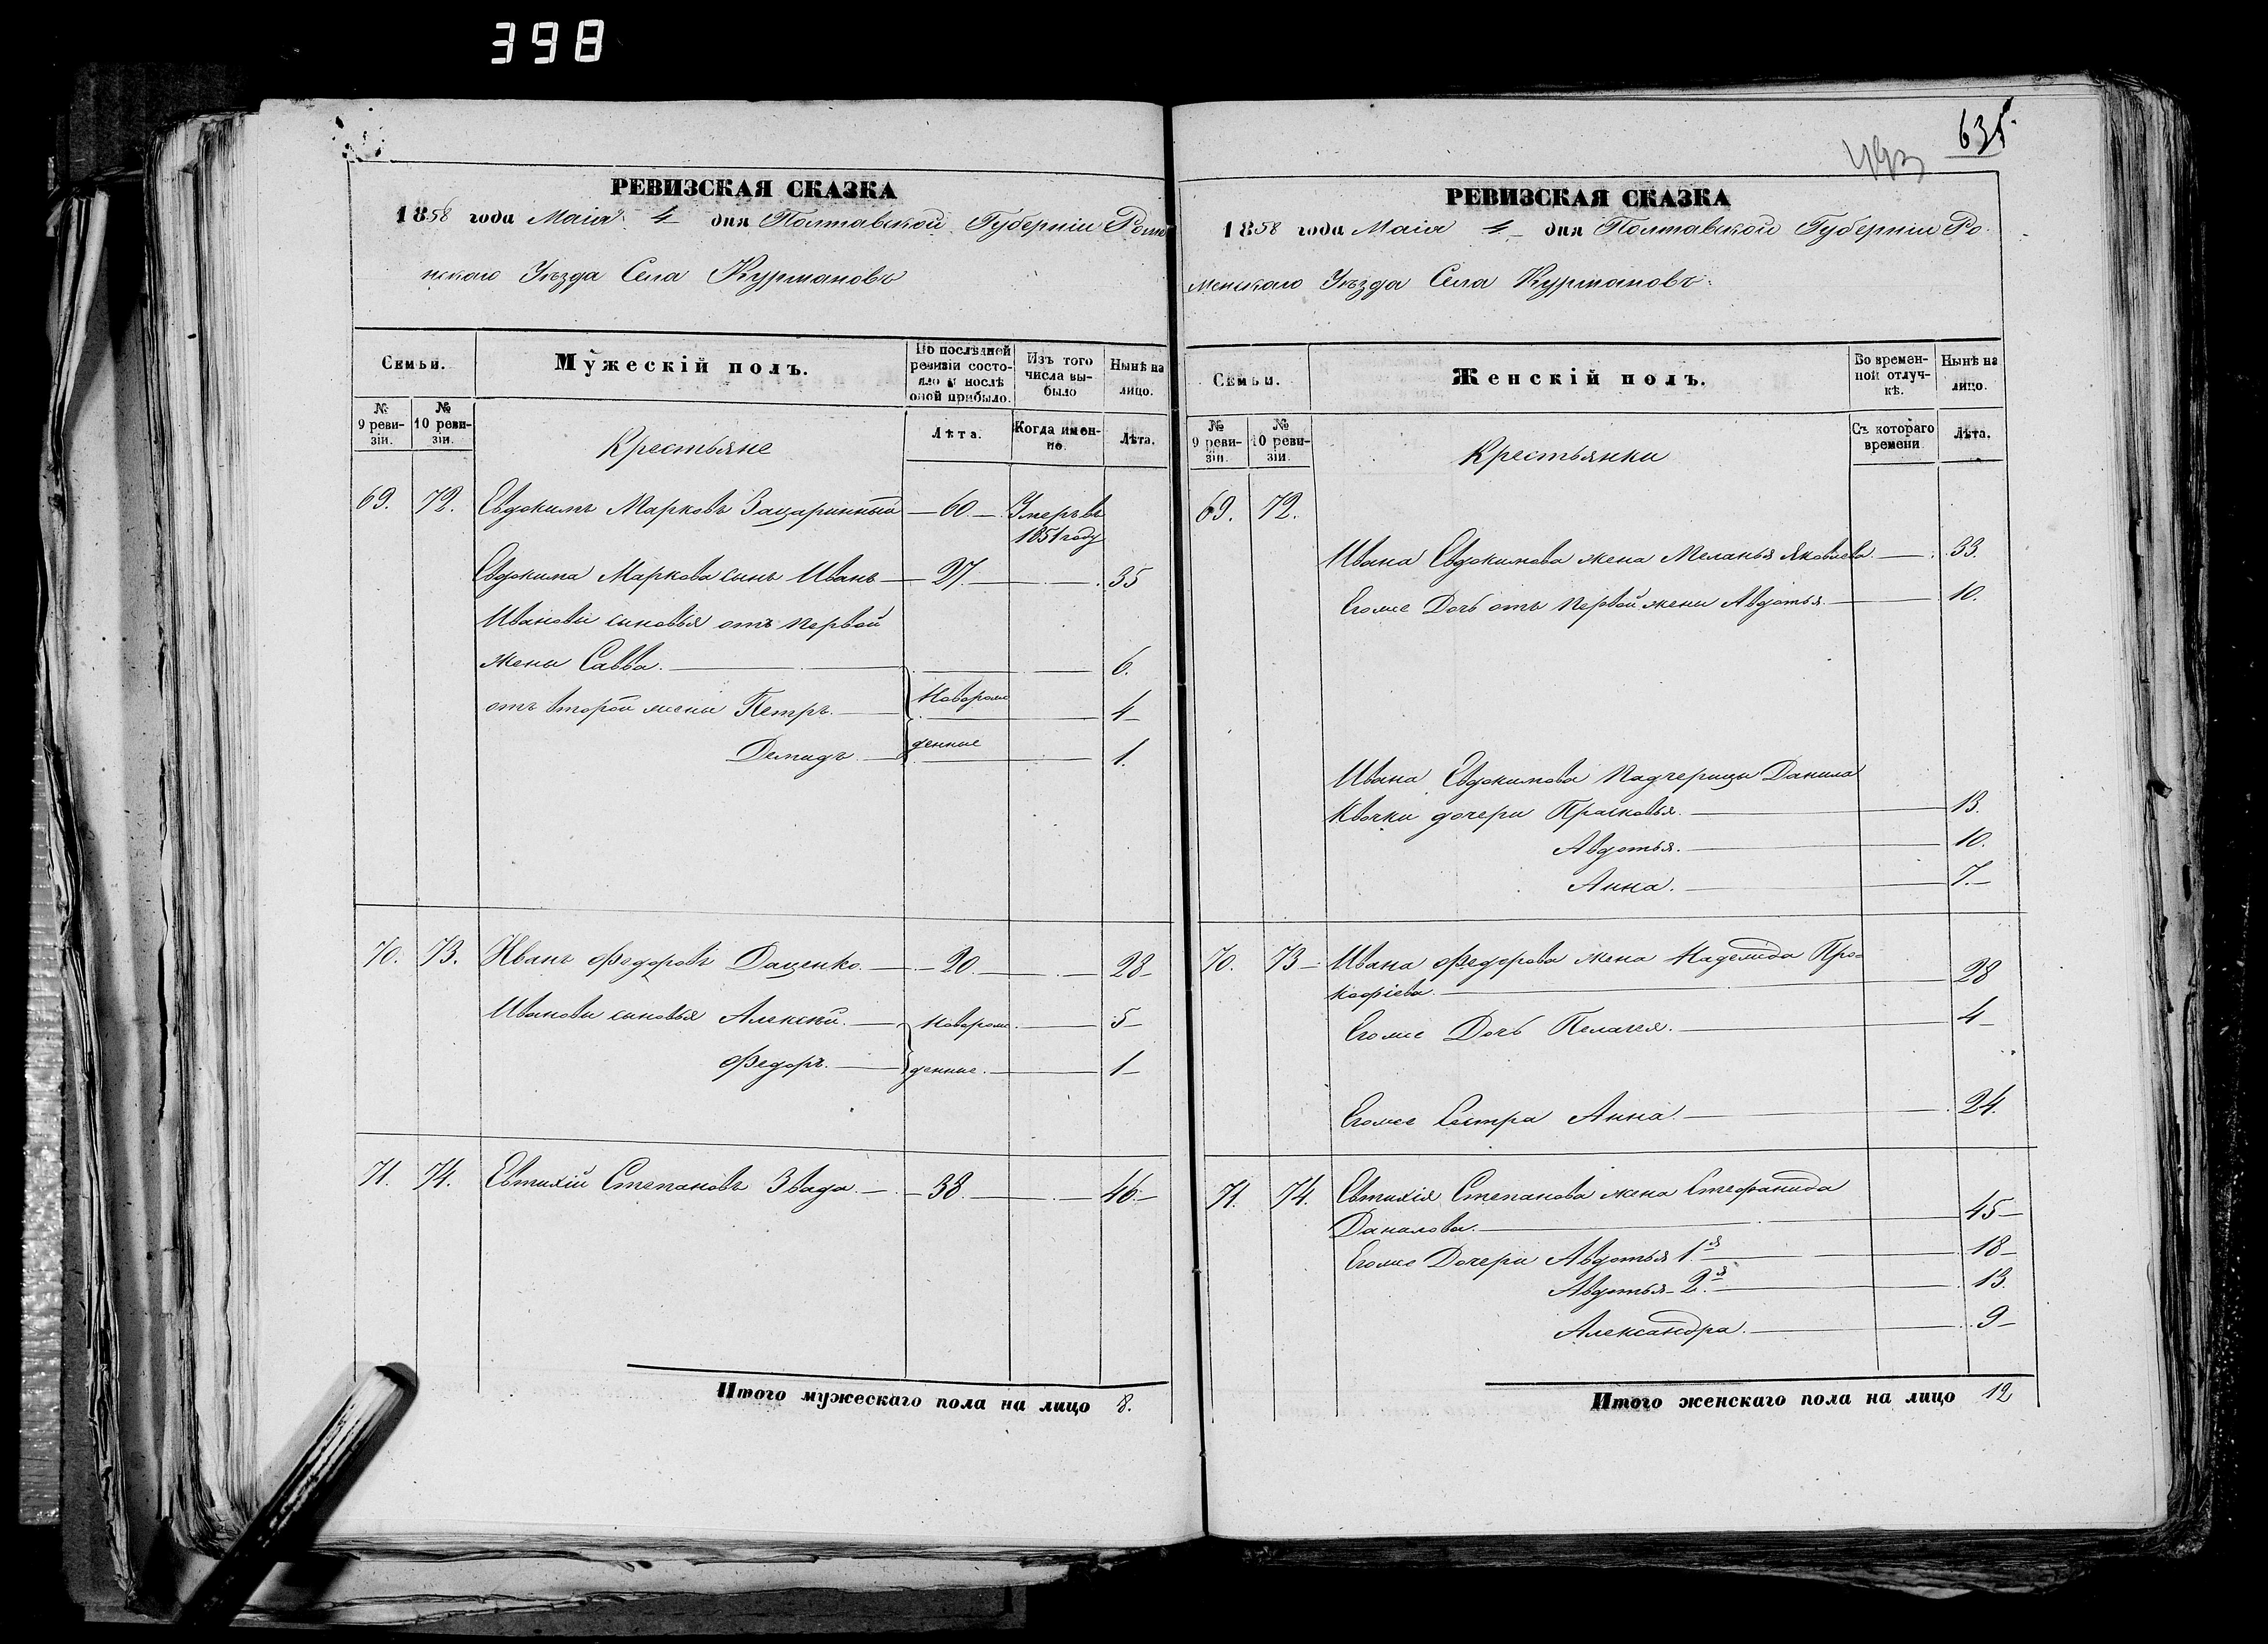 398
РЕВИЗСКАЯ СКАЗКА
1858 года Маія 4 дня Полтавской Губерніи Роме
нскаго Уѣзда Села Курмановъ
Семьи.
Мужескій полъ.
По послѣдней ревизіи состояло и послѣ оной прибыло.
Изъ того числа выбыло
Нынѣ на лицо.
№ 9 ревизіи.
№ 10 ревизіи.
Крестьяне
Лѣта.
Когда именно.
Лѣта.
69. 72. Евдокимъ Марковъ Зацаринный 60 Умеръ въ
1851 году
Евдокима Маркова сынъ Иванъ 27 35
Ивановы сыновья отъ первой
жены Савва. 6.
отъ второй жены Петръ. Новорож 4
Демидъ денные 1.
70. 73. Иванъ Федоровъ Даценко. 20 28
Ивановы сыновья Алексѣй. Новорож 5
Федоръ. денные. 1
71. 74. Евтихій Степановъ Звада. 38. 46
Итого мужескаго пола на лицо 8.
635
493
РЕВИЗСКАЯ СКАЗКА
1858 года Маія 4 дня Полтавской Губерніи Ро
менскаго Уѣзда Села Курмановъ.
Семьи.
Женскій полъ.
Во временной отлучкѣ.
Нынѣ на лицо.
№ 9 ревизіи.
№ 10 ревизіи.
Крестьянки
Съ котораго времени
Лѣта.
69. 72.
Ивана Евдокимова жена Меланья Яковлева 33.
Егоже Дочь отъ первой жены Авдотья. 10.
Ивана Евдокимова падчерицы Данила
Квочки дочери Прасковья. 13.
Авдотья. 10.
Анна. 7.
70. 73 Ивана Федорова жена Надежда Про
кофіева. 28
Егоже Дочь Пелагея. 4
Егоже Сестра Анна. 24.
71. 74. Евтихія Степанова жена Стефанида
Данилова. 45
Егоже Дочери Авдотья 1я 18
Авдотья 2я 13.
Александра. 9
Итого женскаго пола на лицо 12